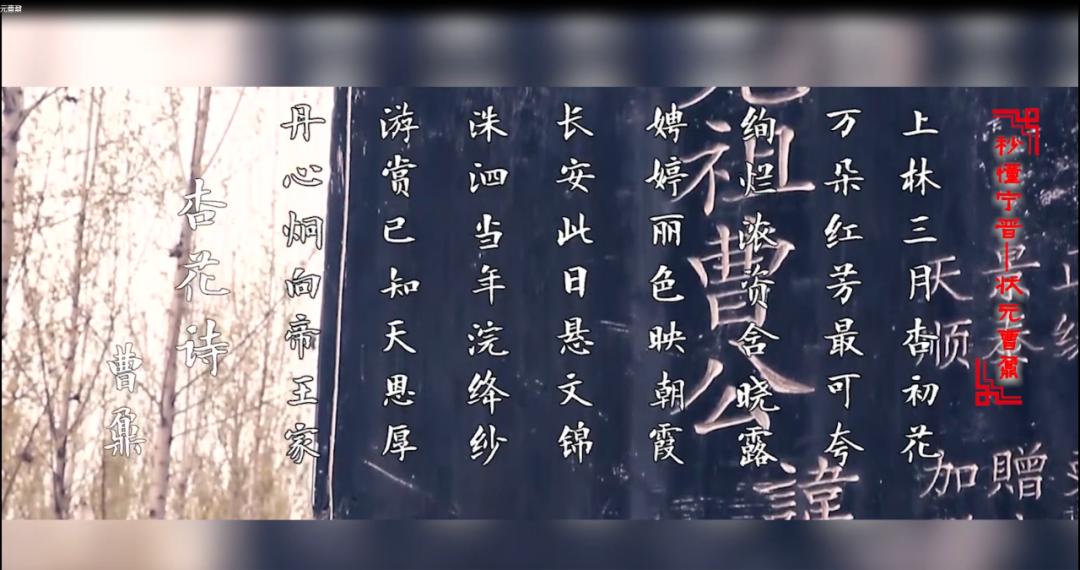 元曹鼐
秒懂宁晋—状元曹鼐
上林三月杏初花
万朵红芳最可夸
绚烂浓资含晓露
娉婷丽色映朝霞
长安此日悬文锦
洙泗当年浣绛纱
游赏已知天恩厚
丹心炯向帝王家
杏花诗
曹鼐
加贈
天顺
祖曹公諱